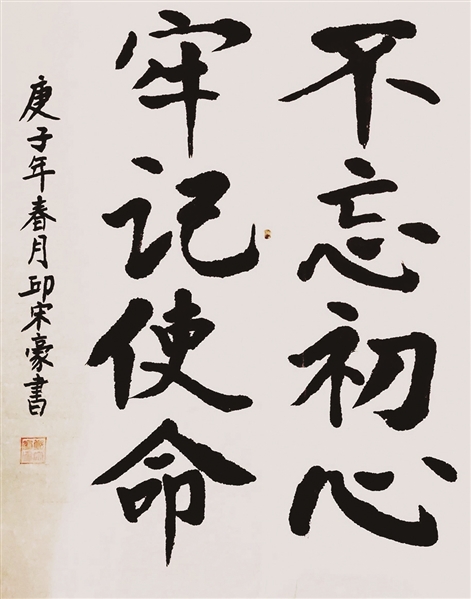 不忘初心
牢记使命
庚子年春月邱宋豪書